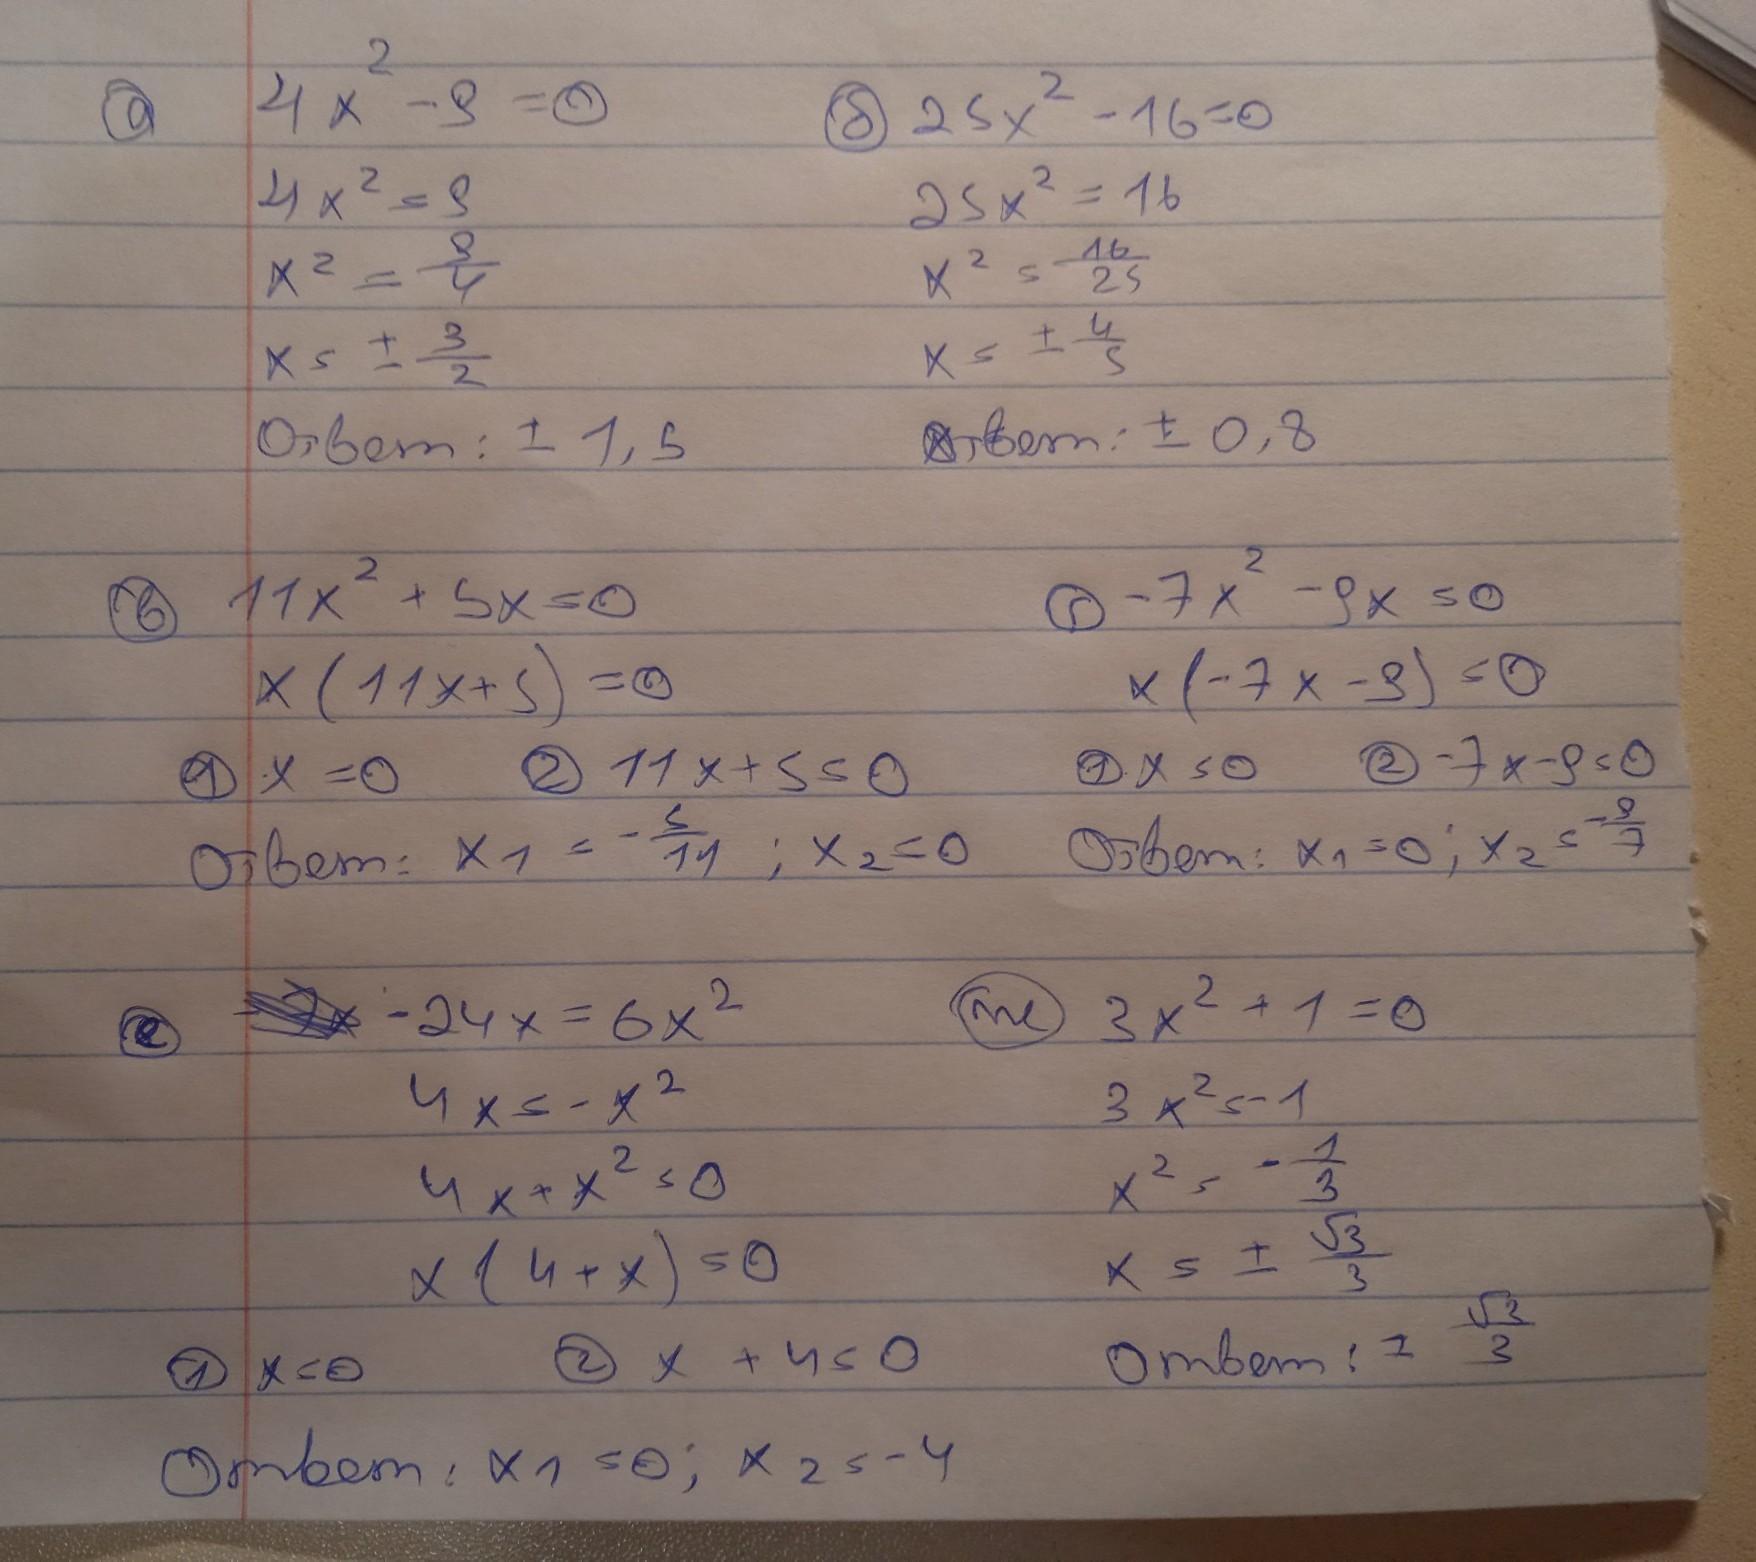 а) 4x² - 9 = 0
4x² = 9
x² = 9/4
x = ± 3/2
Ответ: ± 1,5
б) 25x² - 16 = 0
25x² = 16
x² = 16/25
x = ± 4/5
Ответ: ± 0,8
в) 11x² + 5x = 0
x(11x+5) = 0
① x = 0 ② 11x+5 = 0
Ответ: x₁ = -5/11 ; x₂ = 0
г) -7x² - 9x = 0
x(-7x-9) = 0
① x = 0 ② -7x-9 = 0
Ответ: x₁ = 0; x₂ = -9/7
е) -24x = 6x²
4x = -x²
4x + x² = 0
x(4+x) = 0
① x = 0 ② x + 4 = 0
Ответ: x₁ = 0; x₂ = -4
ж) 3x² + 1 = 0
3x² = -1
x² = - 1/3
x = ± √3/3
Ответ: ± √3/3